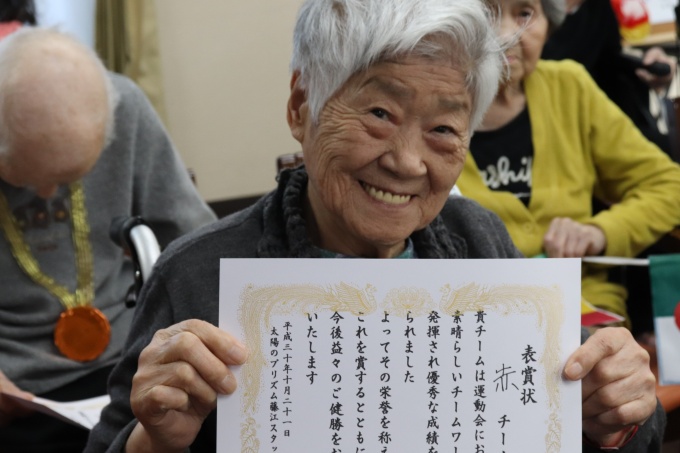 表賞状
赤 チー
貴チームは運動会にお
素晴らしいチームワー
発揮され優秀な成績を
られました
よってその栄誉を称え
これを賞するとともに
今後益々のご健勝をお
いたします
平成三十年十月二十一日
太陽のプリズム藤江スタッ
ashik